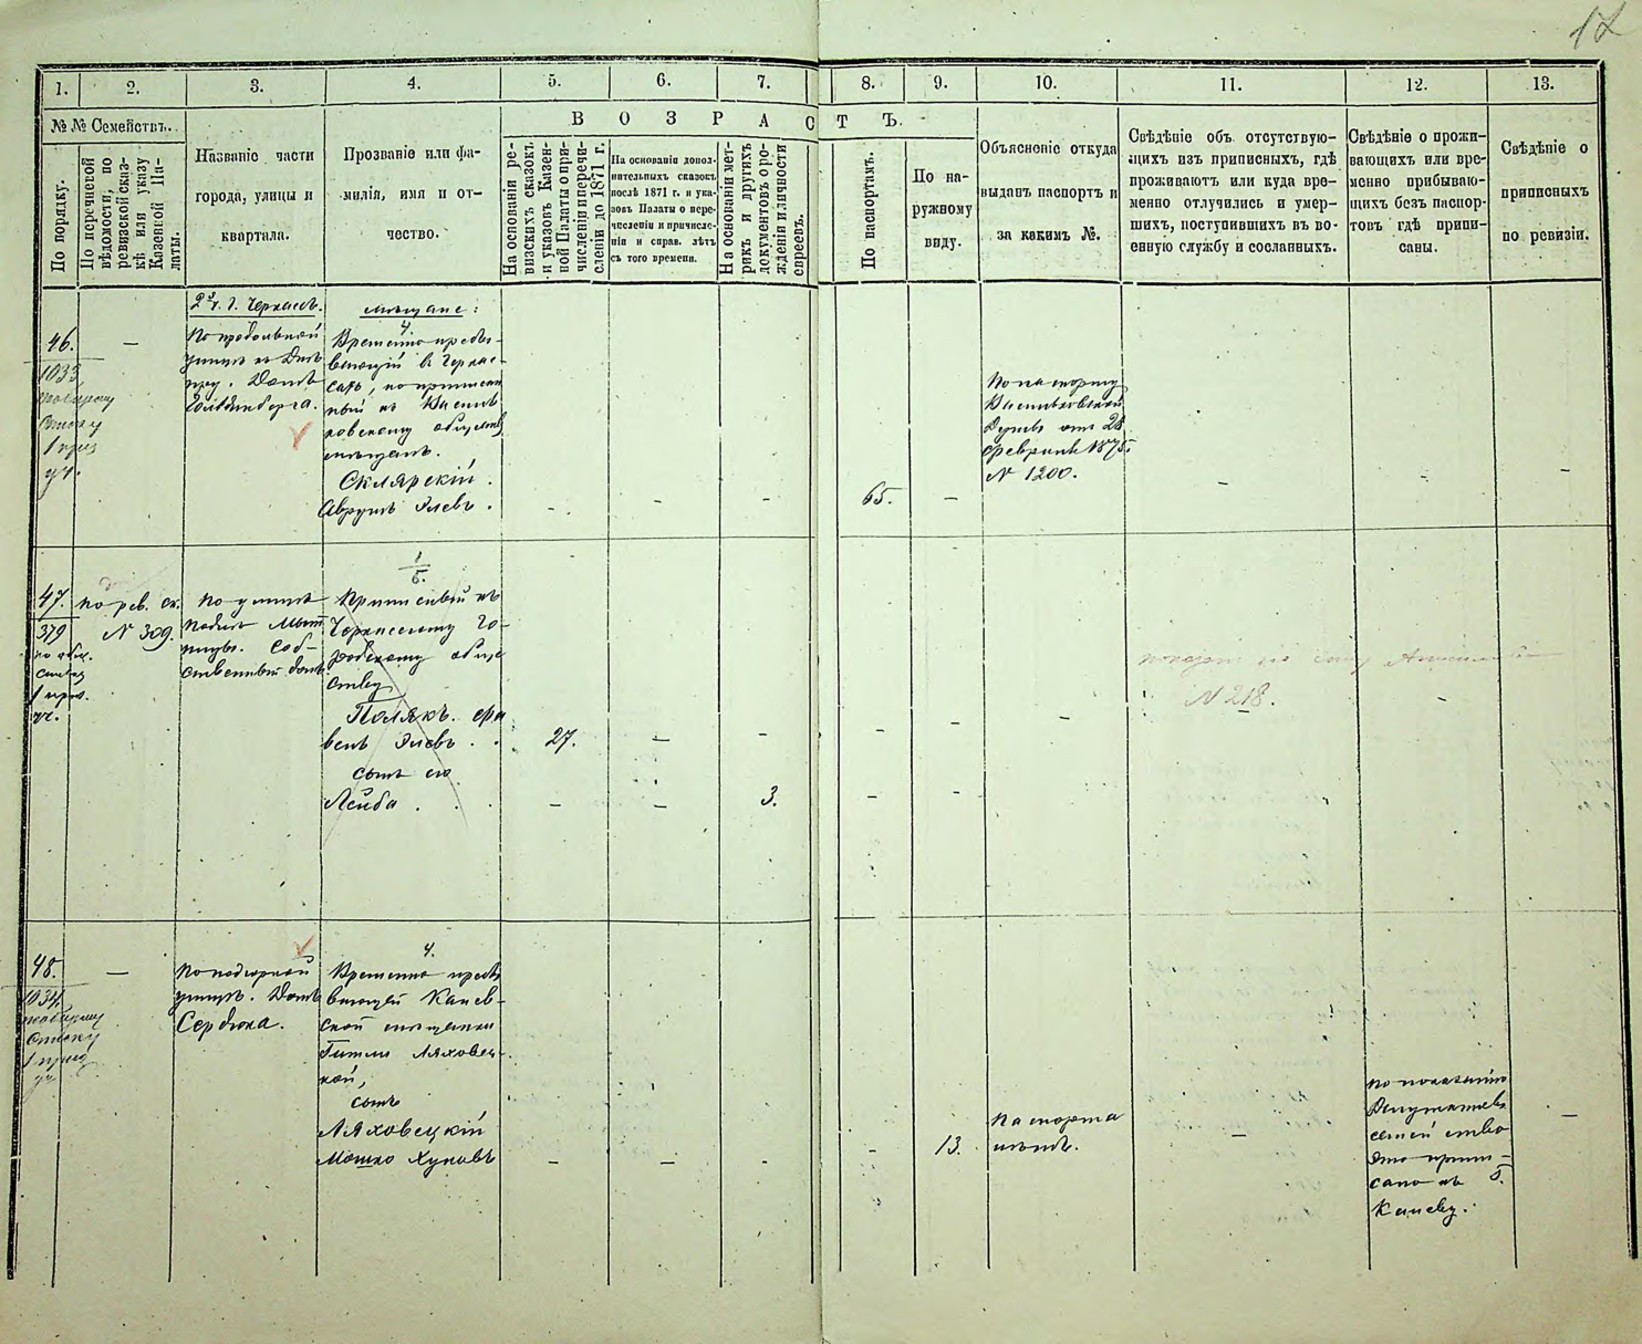 17
1. 2. 3. 4. 5. 6. 7. 8. 9. 10. 11. 12. 13.
№ № Семействъ.
В О З Р А С Т Ъ.
По порядку.
По перечневой
вѣдомости, по
ревизской сказ-
кѣ или указу
Казенной Па-
латы.
Названіе части
города, улицы и
квартала.
Прозваніе или фа-
милія, имя и от-
чество.
На основаніи ре-
визскихъ сказокъ
и указовъ Казен-
ной Палаты о при-
численіи и перечи-
сленіи до 1871 г.
На основаніи допол-
нительныхъ сказокъ
послѣ 1871 г. и ука-
зовъ Палаты о пере-
численіи и причисле-
ніи и справ. лѣтъ
съ того времени.
На основаніи мет-
рикъ и другихъ
документовъ о ро-
жденіи и личности
евреевъ.
По паспортамъ.
По на-
ружному
виду.
Объясненіе откуда
выданъ паспортъ и
за какимъ №.
Свѣдѣніе объ отсутствую-
щихъ изъ приписныхъ, гдѣ
проживаютъ или куда вре-
менно отлучились и умер-
шихъ, поступившихъ въ во-
енную службу и сосланныхъ.
Свѣдѣніе о прожи-
вающихъ или вре-
менно прибываю-
щихъ безъ паспор-
товъ гдѣ припи-
саны.
Свѣдѣніе о
приписныхъ
по ревизіи.
46.
1033
списку
1 приз
уч.
—
2 ч. г. Черкасъ.
По продольной
улицѣ къ Днѣ
пру. Домъ
Гольденберга.
мѣщане:
4.
Временно пребы-
вающій въ Черкас-
сахъ, но приписан
ный къ Василь
ковскому обществу
мѣщанъ.
Склярскій
Аврумъ Элевъ.
- - - 65. -
По паспорту
Васильковской
Думы отъ 28
февраля 1875.
№ 1200.
- - -
47.
379
по общ.
списку
1 приз.
уч.
По рев. ск.
№ 309.
По улицѣ
подлѣ
Соб-
ственный домъ
1/5.
Приписный къ
Черкасскому го-
родскому обще
ству
Полякъ.
Элевъ . . 27. — - - - -
сынъ его
Лейба . . . - — 3. - -
№ 218. -
48.
1034
списку
1 приз
уч
—
По подгорной
улицѣ. Домъ
Сердюка.
4.
Временно пребы
вающей Канев-
ской мѣщанки
Гитли Ляховец-
кой,
сынъ
Ляховецкій
Мошко - — - - 13.
Паспорта
нѣтъ.
—
По показанію
Депутатовъ
семейство
это припи-
сано къ г.
Каневу.
—